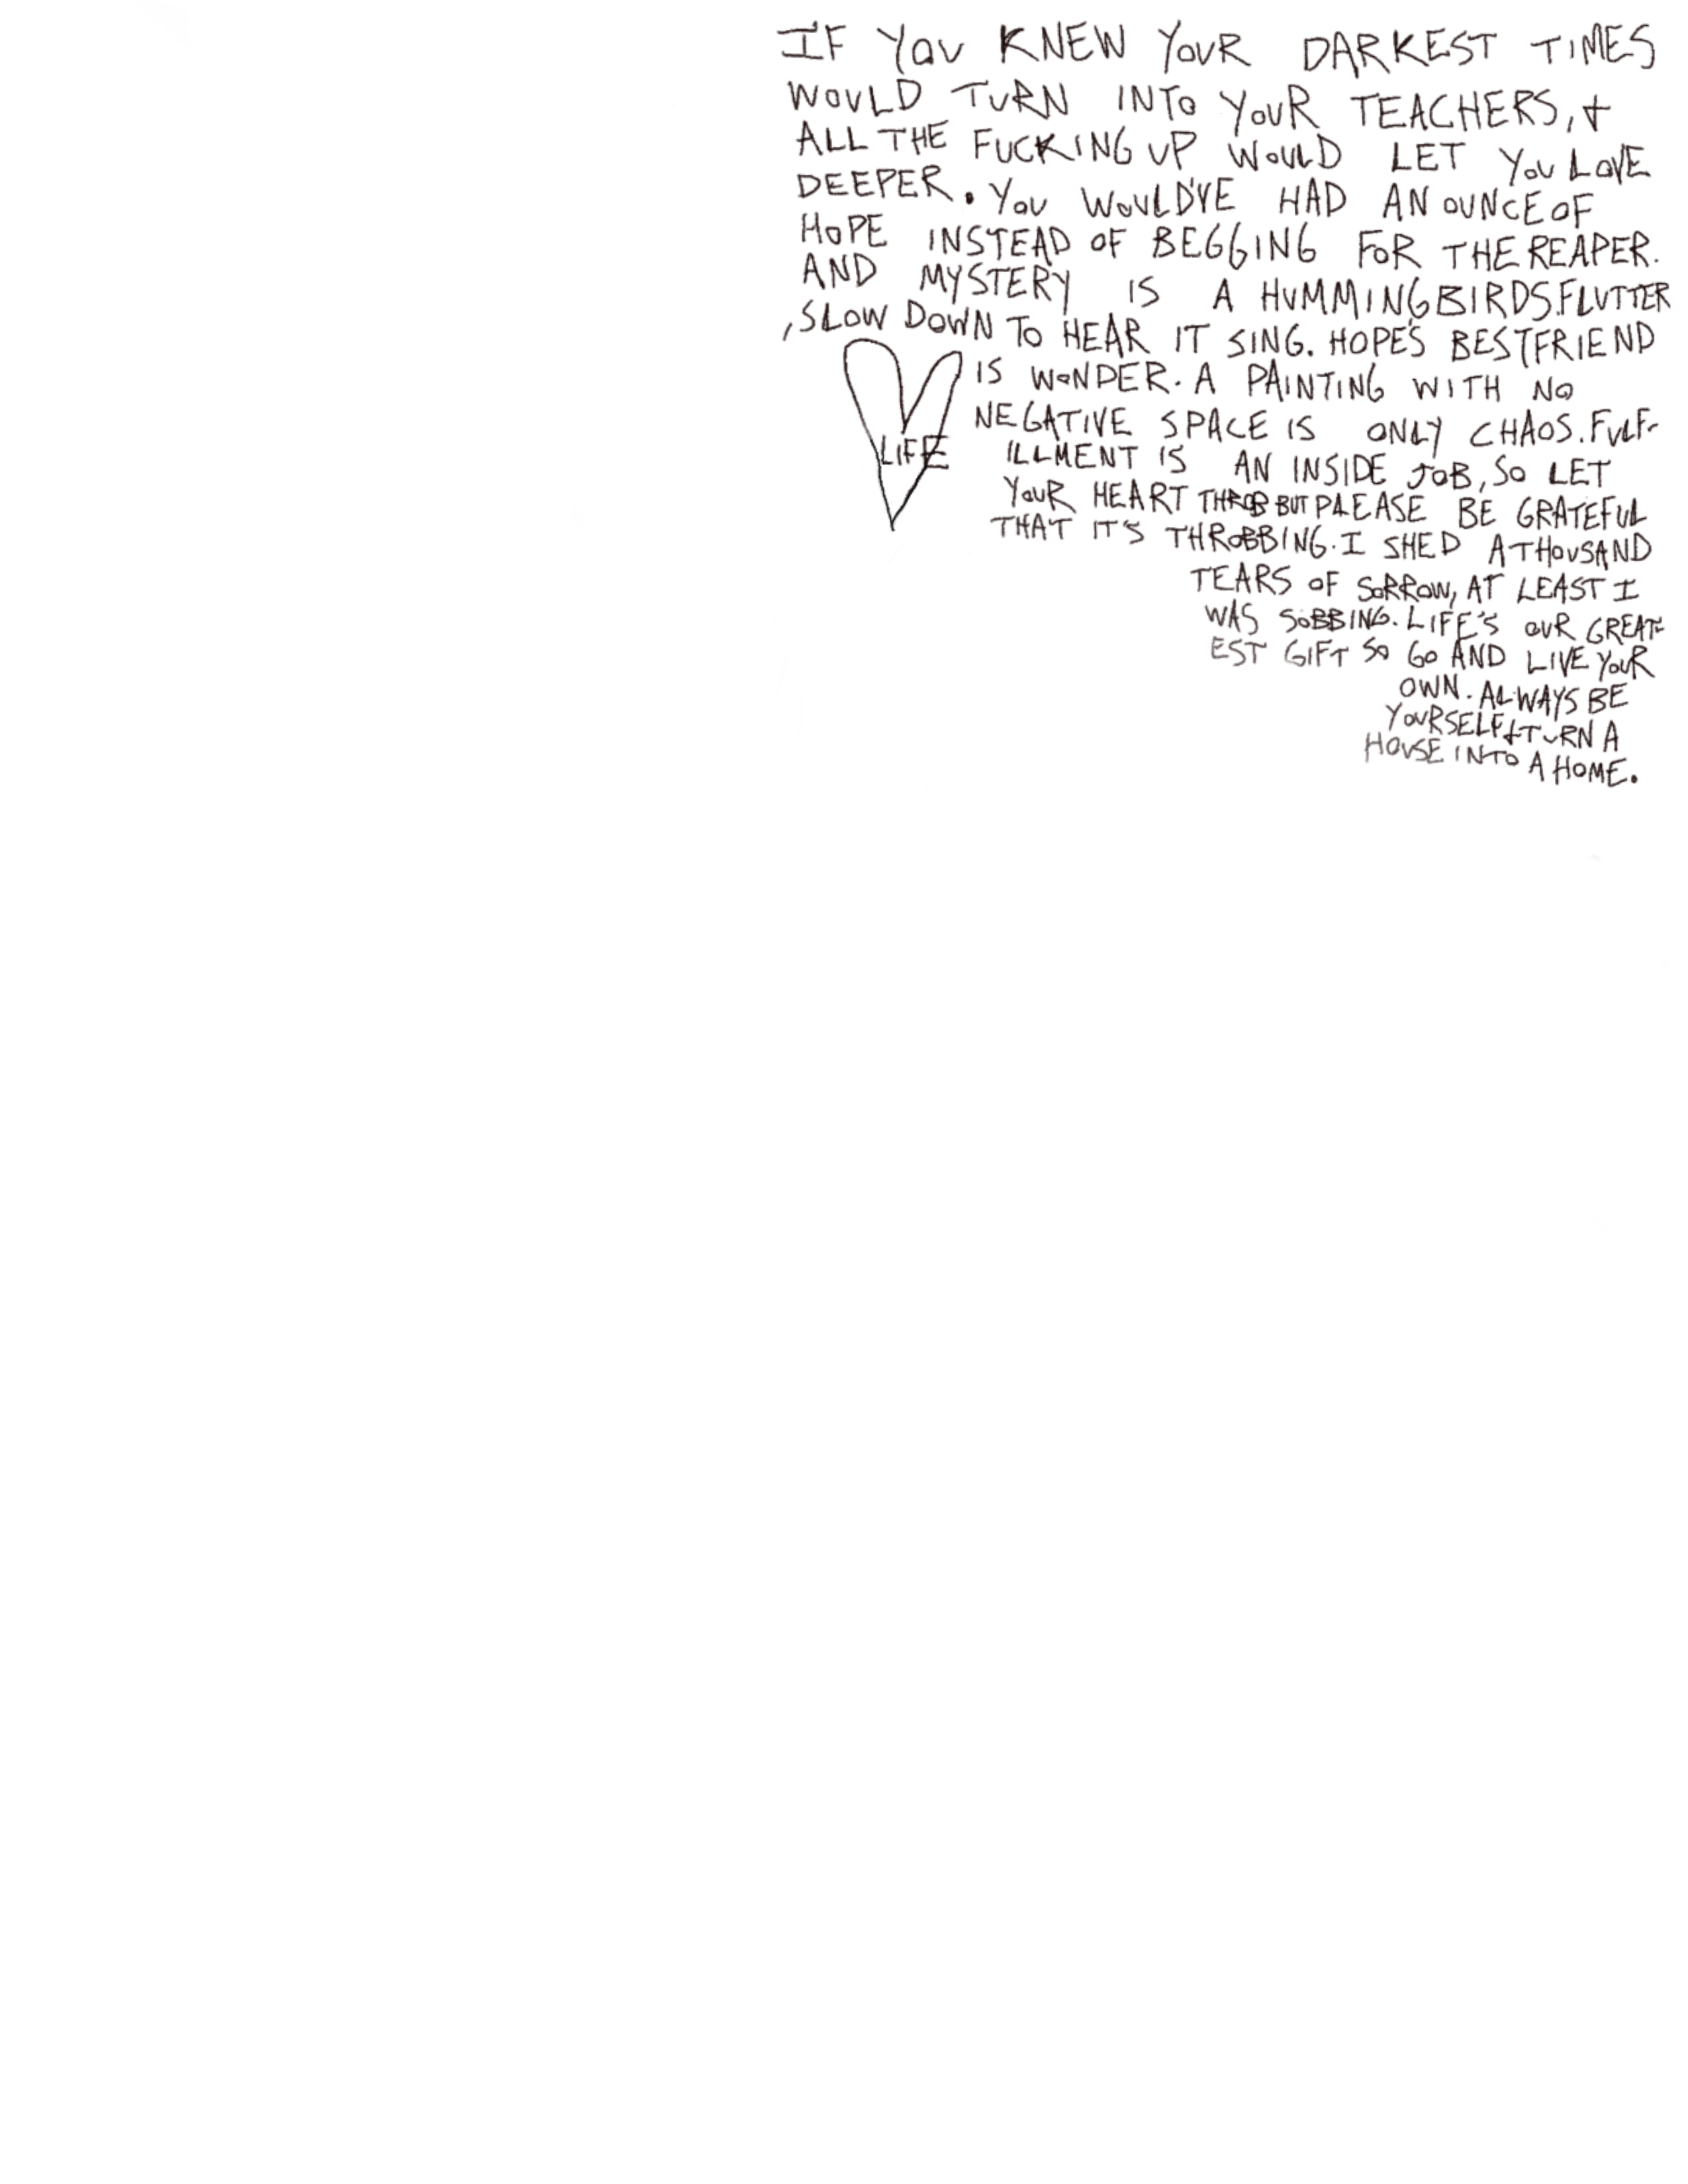 IF YOU KNEW YOUR DARKEST TIMES
WOULD TURN INTO YOUR TEACHERS, &
ALL THE FUCKING UP WOULD LET YOU LOVE
DEEPER. YOU WOULD'VE HAD AN OUNCE OF
HOPE INSTEAD OF BEGGING FOR THE REAPER.
AND MYSTERY IS A HUMMINGBIRD'S FLUTTER
, SLOW DOWN TO HEAR IT SING. HOPE'S BESTFRIEND
IS WONDER. A PAINTING WITH NO
NEGATIVE SPACE IS ONLY CHAOS. FULF-
LIFE
ILLMENT IS AN INSIDE JOB, SO LET
YOUR HEART THROB BUT PLEASE BE GRATEFUL
THAT IT'S THROBBING. I SHED A THOUSAND
TEARS OF SORROW, AT LEAST I
WAS SOBBING. LIFE'S OUR GREAT-
EST GIFT SO GO AND LIVE YOUR
OWN. ALWAYS BE
YOURSELF & TURN A
HOUSE INTO A HOME.